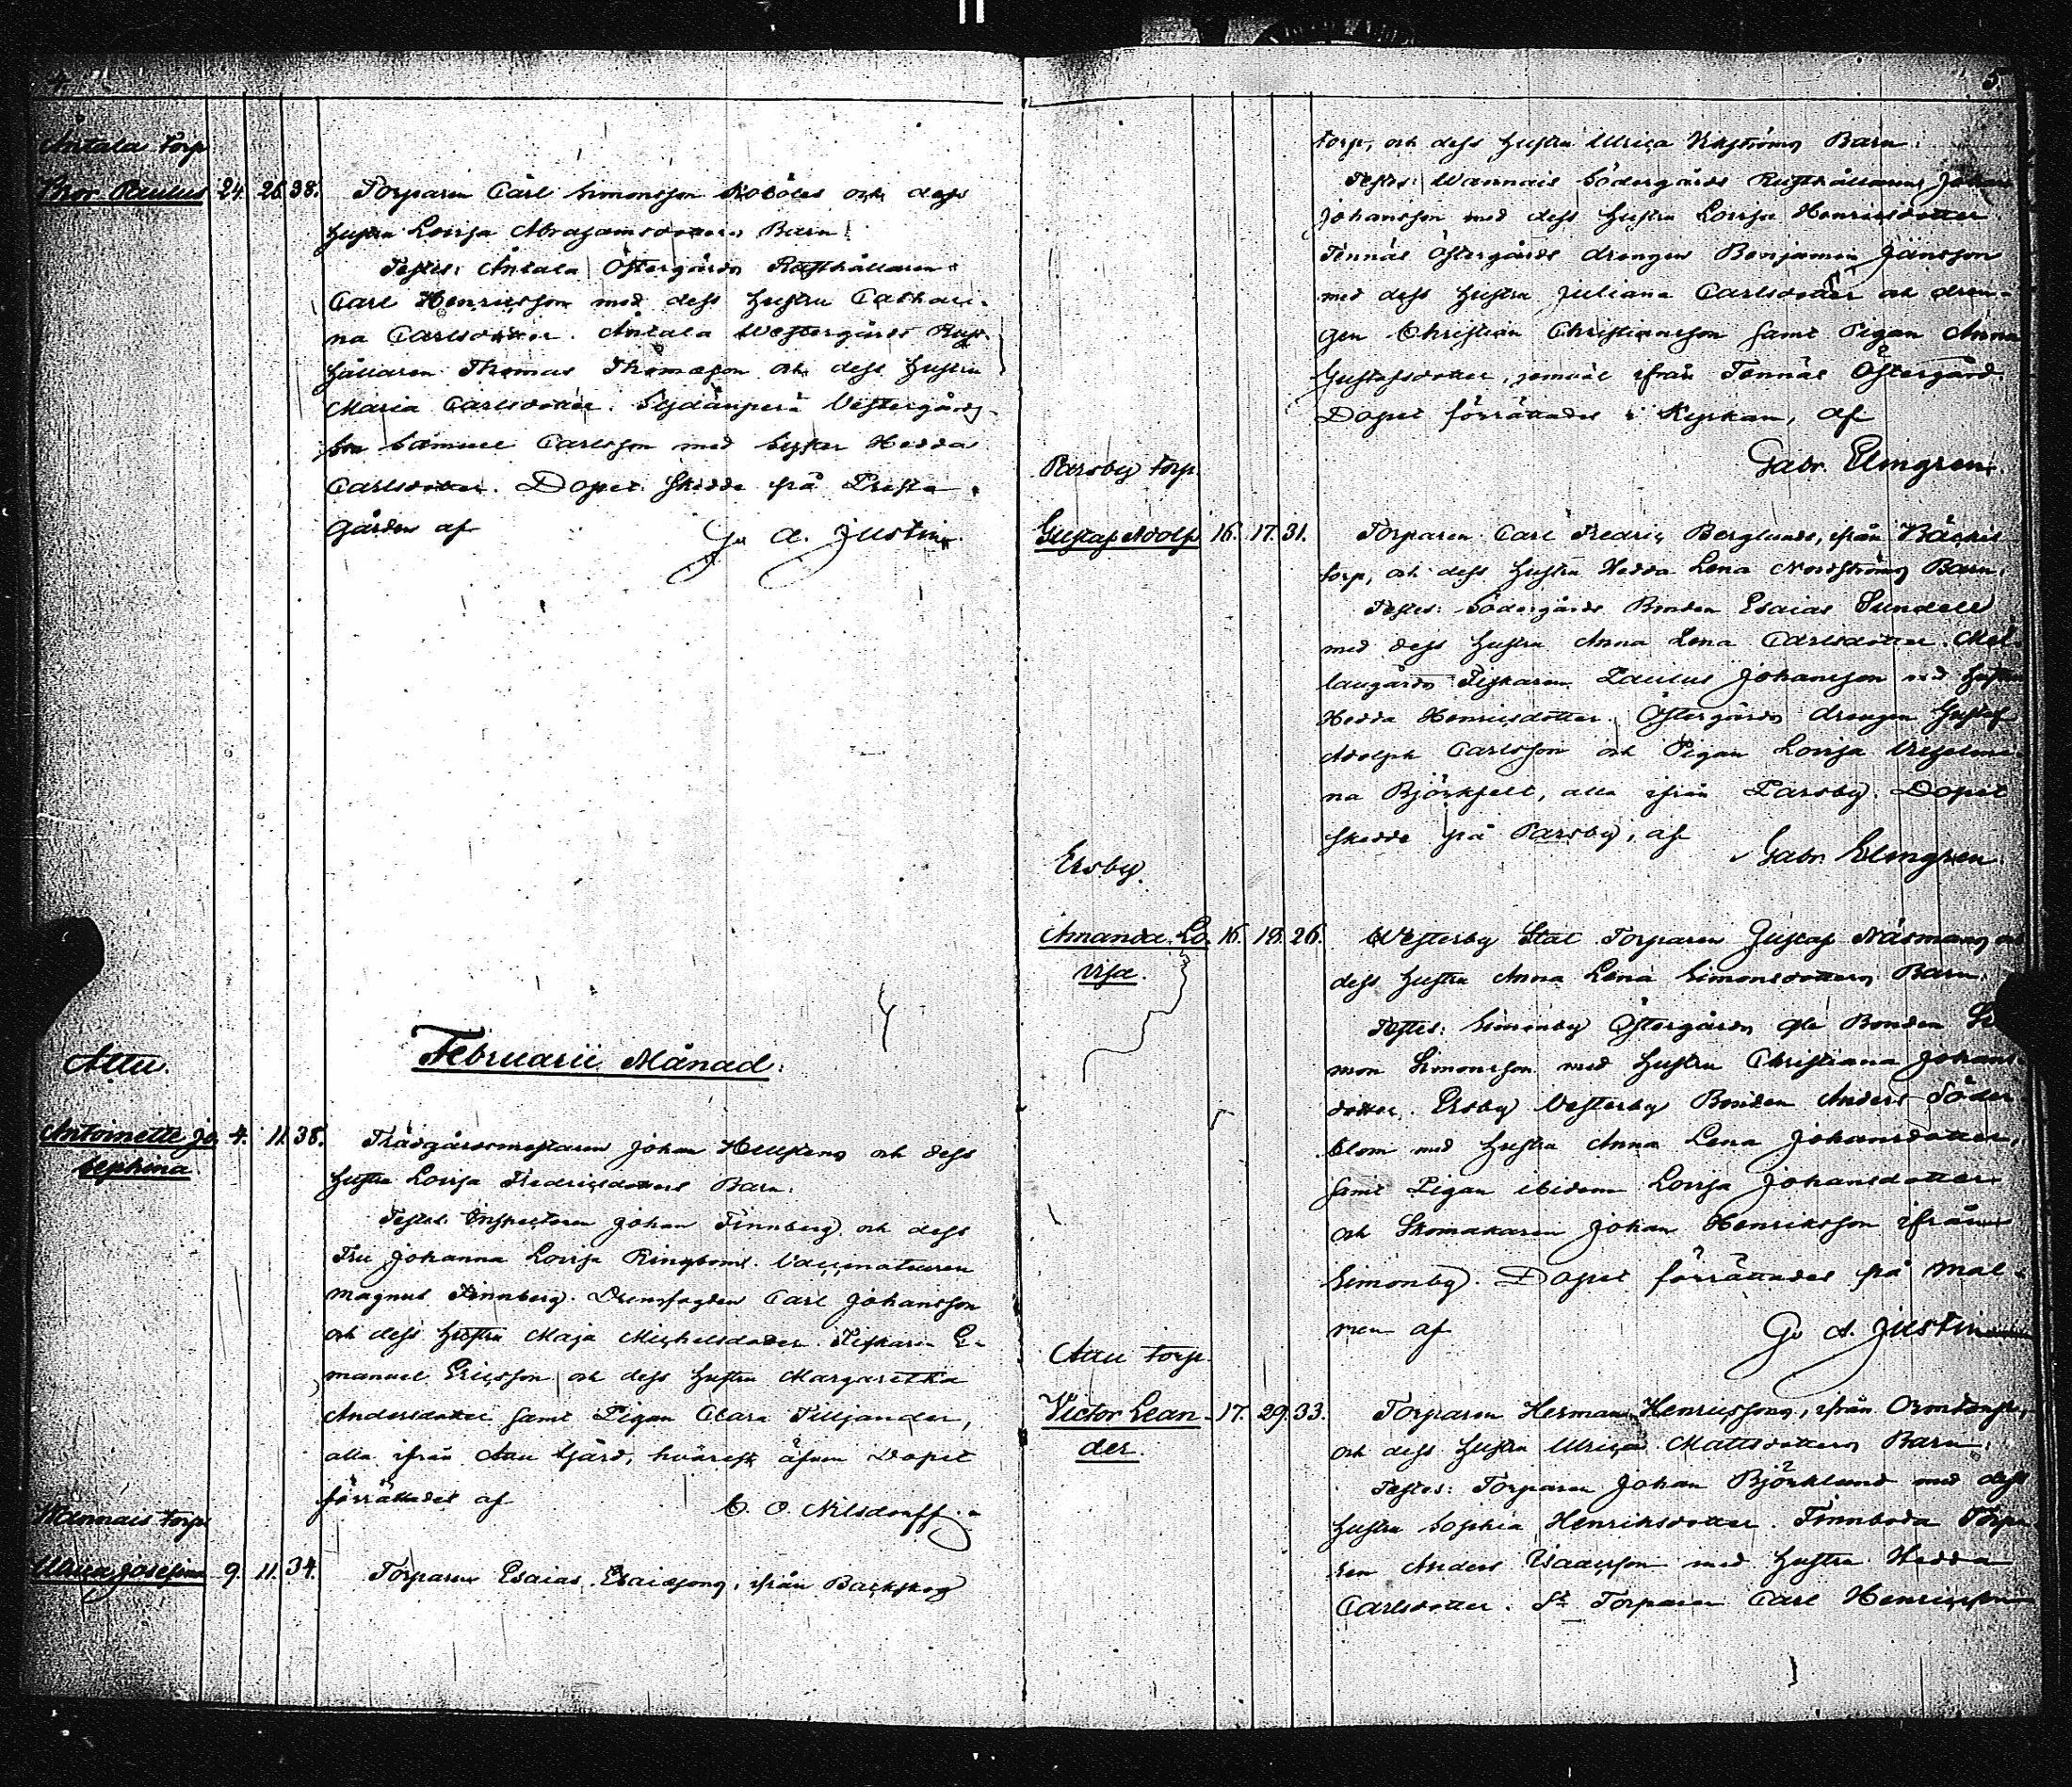 4.
Åntala torp
Bror Paulus 24. 26. 38. Torparen Carl Simonsson och dess
hustru Lovisa Abrahamsdotters Barn.
Testes: Åntala Östergårds Rusthållaren
Carl Henricsson med dess hustru Cathari-
na Carlsdotter. Åntala Westergårds Rust-
hållaren Thomas Thomasson och dess hustru
Maria Carlsdotter. Sydänperä Vestergårds
Son Samuel Carlsson med Syster Hedda
Carlsdotter. Dopet skedde på Prest-
gården af G. A. Justin.
Februarii Månad.
Attu.
Antoinette Jo- 4. 11. 38. Trädgårdsmästaren Johan Hellstens och dess
sephina. hustru Lovisa Fredricsdotters Barn.
Testes: Inspectoren Johan Finnberg och dess
Fru Johanna Lovisa Ringbom. Vaccinateuren
Magnus Finnberg. Drengfogden Carl Johansson
och dess hustru Maja Michelsdotter. Fiskaren E-
manuel Ericsson och dess hustru Margaretha
Andersdotter samt Pigan Clara Tilljander,
alla ifrån Attu Gård, hvarest äfven Dopet
förrättades af C. O. Nilsdorff.
Wannais torp
Ulrica Josefina 9. 11. 34. Torparen Esaias Esaiassons, ifrån Backskog
5.
torp, och dess hustru Ulrica Barn.
Testes: Wannais Södergårds Rusthållaren Johan
Johansson med dess hustru Lovisa Henricsdotter.
Tennäs Östergårds drengen Benjamin Jansson
med dess hustru Juliana Carlsdotter och dren-
gen Christian Christiansson samt Pigan Anna
Gustafsdotter, jemväl ifrån Tennäs Östergård.
Dopet förrättades i Kyrkan, af
Gabr. Elmgren.
Parsby torp.
Gustaf Adolf 16. 17. 31. Torparen Carl Fredric Berglunds, ifrån Bäckis
torp, och dess hustru Hedda Lena Nordströms Barn.
Testes: Södergårds Bonden Esaias Sundell
med dess hustru Anna Lena Carlsdotter. Mel-
langårds Fiskaren Paulus Johansson med hustru
Hedda Henricsdotter. Östergårds drengen Gustaf
Adolph Carlsson och Pigan Lovisa Vilhelmi-
na Björkfelt, alla ifrån Parsby. Dopet
skedde på Parsby, af Gabr. Elmgren.
Ersby.
Amanda Lo- 16. 18. 26. Westerby Stat Torparen Gustaf Näsmans och
visa. dess hustru Anna Lena Simonsdotters Barn.
Testes: Simonby Östergårds Bonden Si-
mon Simonsson med hustru Christiana Johans-
dotter. Ersby Vesterby Bonden Anders Söder-
blom med hustru Anna Lena Johansdotter,
samt Pigan ibidem Lovisa Johansdotter
och Skomakaren Johan Henriksson ifrån
Simonby. Dopet förrättades på Mal-
men af G. A. Justin
Attu torp.
Victor Lean- 17. 29. 33. Torparen Herman Henricssons, ifrån
der. och dess hustru Ulrica Mattsdotters Barn.
Testes: Torparen Johan Björklund med dess
hustru Sophia Henriksdotter. Finnboda Torpa-
ren Anders Isaacsson med hustru Hedda
Carlsdotter. St Torparen Carl Henricsson